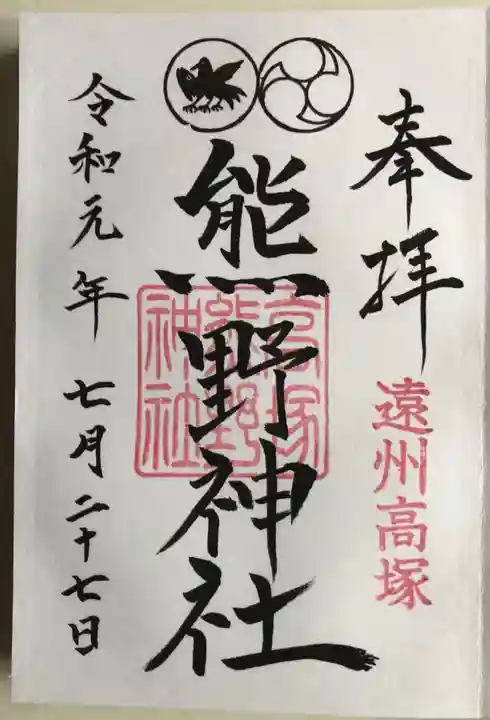 奉拝
遠州高塚
熊野神社
高塚
熊野
神社
令和元年 七月二十七日